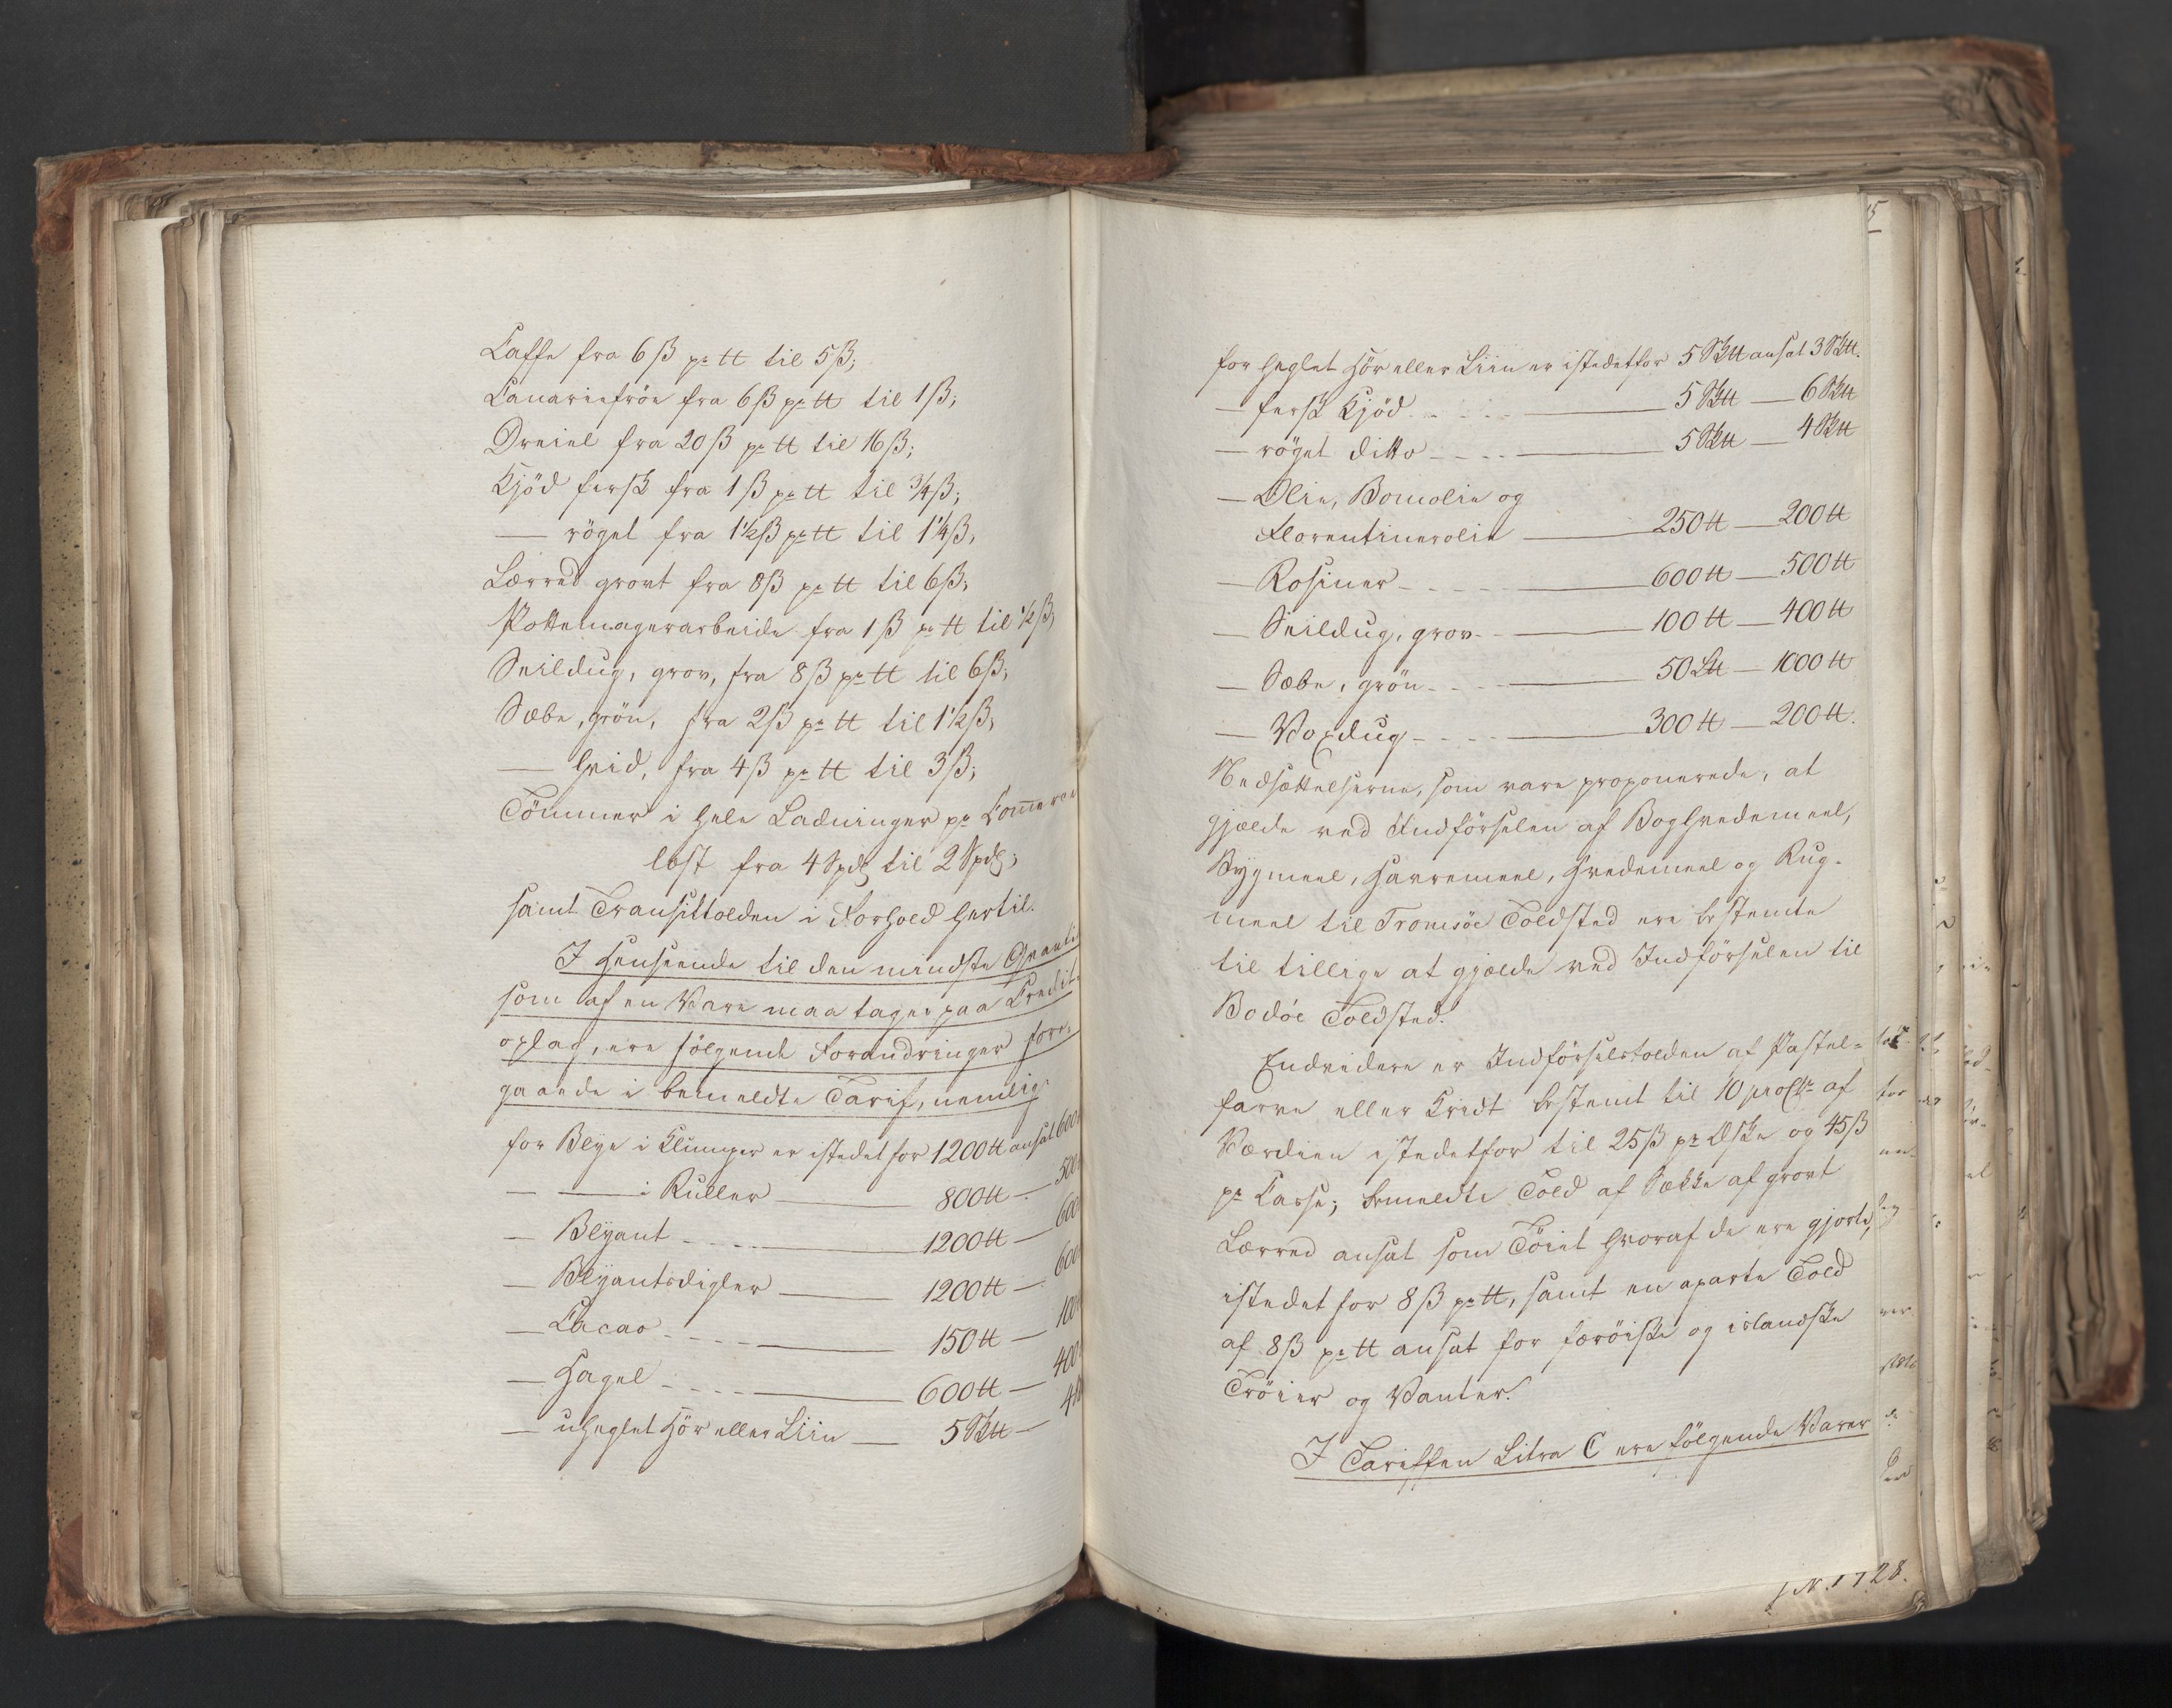 Caffe fra 6 ß pr ℔ til 5 ß;
Canariefröe fra 6 ß pr ℔ til 1 ß;
Dreiel fra 20 ß pr ℔ til 16 ß;
Kjöd fersk fra 1 ß pr ℔ til ¾ ß;
— röget fra 1½ ß pr ℔ til 1¼ ß,
Lærred grovt fra 8 ß pr ℔ til 6 ß;
Pottemagerarbeide fra 1 ß pr ℔ til ½ ß;
Seildug, grov, fra 8 ß pr ℔ til 6 ß;
Sæbe, grön, fra 2 ß pr ℔ til 1½ ß;
— hvid, fra 4 ß pr ℔ til 3 ß;
Tömmer i hele Ladninger pr Commerce
læst fra 4 Spd til 2 Spd;
samt Transittolden i Forhold hertil.
I Henseende til den mindste Qvanti
som af en Vare maa tages paa Credit-
oplag, ere fölgende Forandringer fore-
gaaede i bemeldte Tarif, nemlig:
for Blye i Klumper er istedetfor 1200 ℔ ansat 600
— — i Ruller — 800 ℔ — 500
— Blyant — 1200 ℔ — 600
— Blyantsdigler — 1200 ℔ — 600
— Cacao — 150 ℔ — 100
— Hagel — 600 ℔ — 400
— uheglet Hör eller Liin — 5 Sk℔ — 4
for heglet Hör eller Liin er istedetfor 5 Sk℔ ansat 3 Sk℔.
— fersk Kjöd — 5 Sk℔ — 6 Sk℔
— röget ditto — 5 Sk℔ — 4 Sk℔
— Olie, Bomolie og
Florentinerolie — 250 ℔ — 200 ℔
— Rosiner — 600 ℔ — 500 ℔
— Seildug, grov — 100 ℔ — 400 ℔
— Sæbe, grön — 50 L℔ — 1000 ℔
— Voxdug — 300 ℔ — 200 ℔.
Nedsættelserne, som vare proponerede, at
gjælde ved Indförselen af Boghvedemeel,
Bygmeel, Havremeel, Hvedemeel og Rug-
meel til Tromsöe Toldsted ere bestemte
til tillige at gjælde ved Indförselen til
Bodöe Toldsted.
Endvidere er Indförselstolden af Pastel-
farve eller Kridt bestemt til 10 proCto af
Værdien istedetfor til 25 ß pr Æske og 45 ß
pr Casse; bemeldte Told af Sække af grovt
Lærred ansat som Töiet hvoraf de ere gjorte,
istedetfor 8 ß pr ℔, samt en aparte Told
af 8 ß pr ℔ ansat for færöiske og islandske
Tröier og Vanter.
I Tariffen Litra C ere fölgende Varer